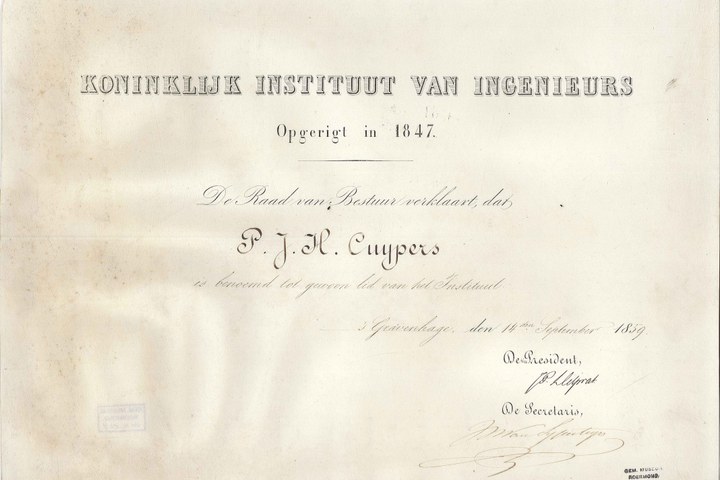 KONINKLIJK INSTITUUT VAN INGENIEURS
Opgerigt in 1847.
De Raad van Bestuur verklaart, dat
P. J. H. Cuypers
is benoemd tot gewoon lid van het Instituut
's Gravenhage, den 14den September 1859
De President,
De Secretaris,
GEM. MUSEUM
ROERMOND.